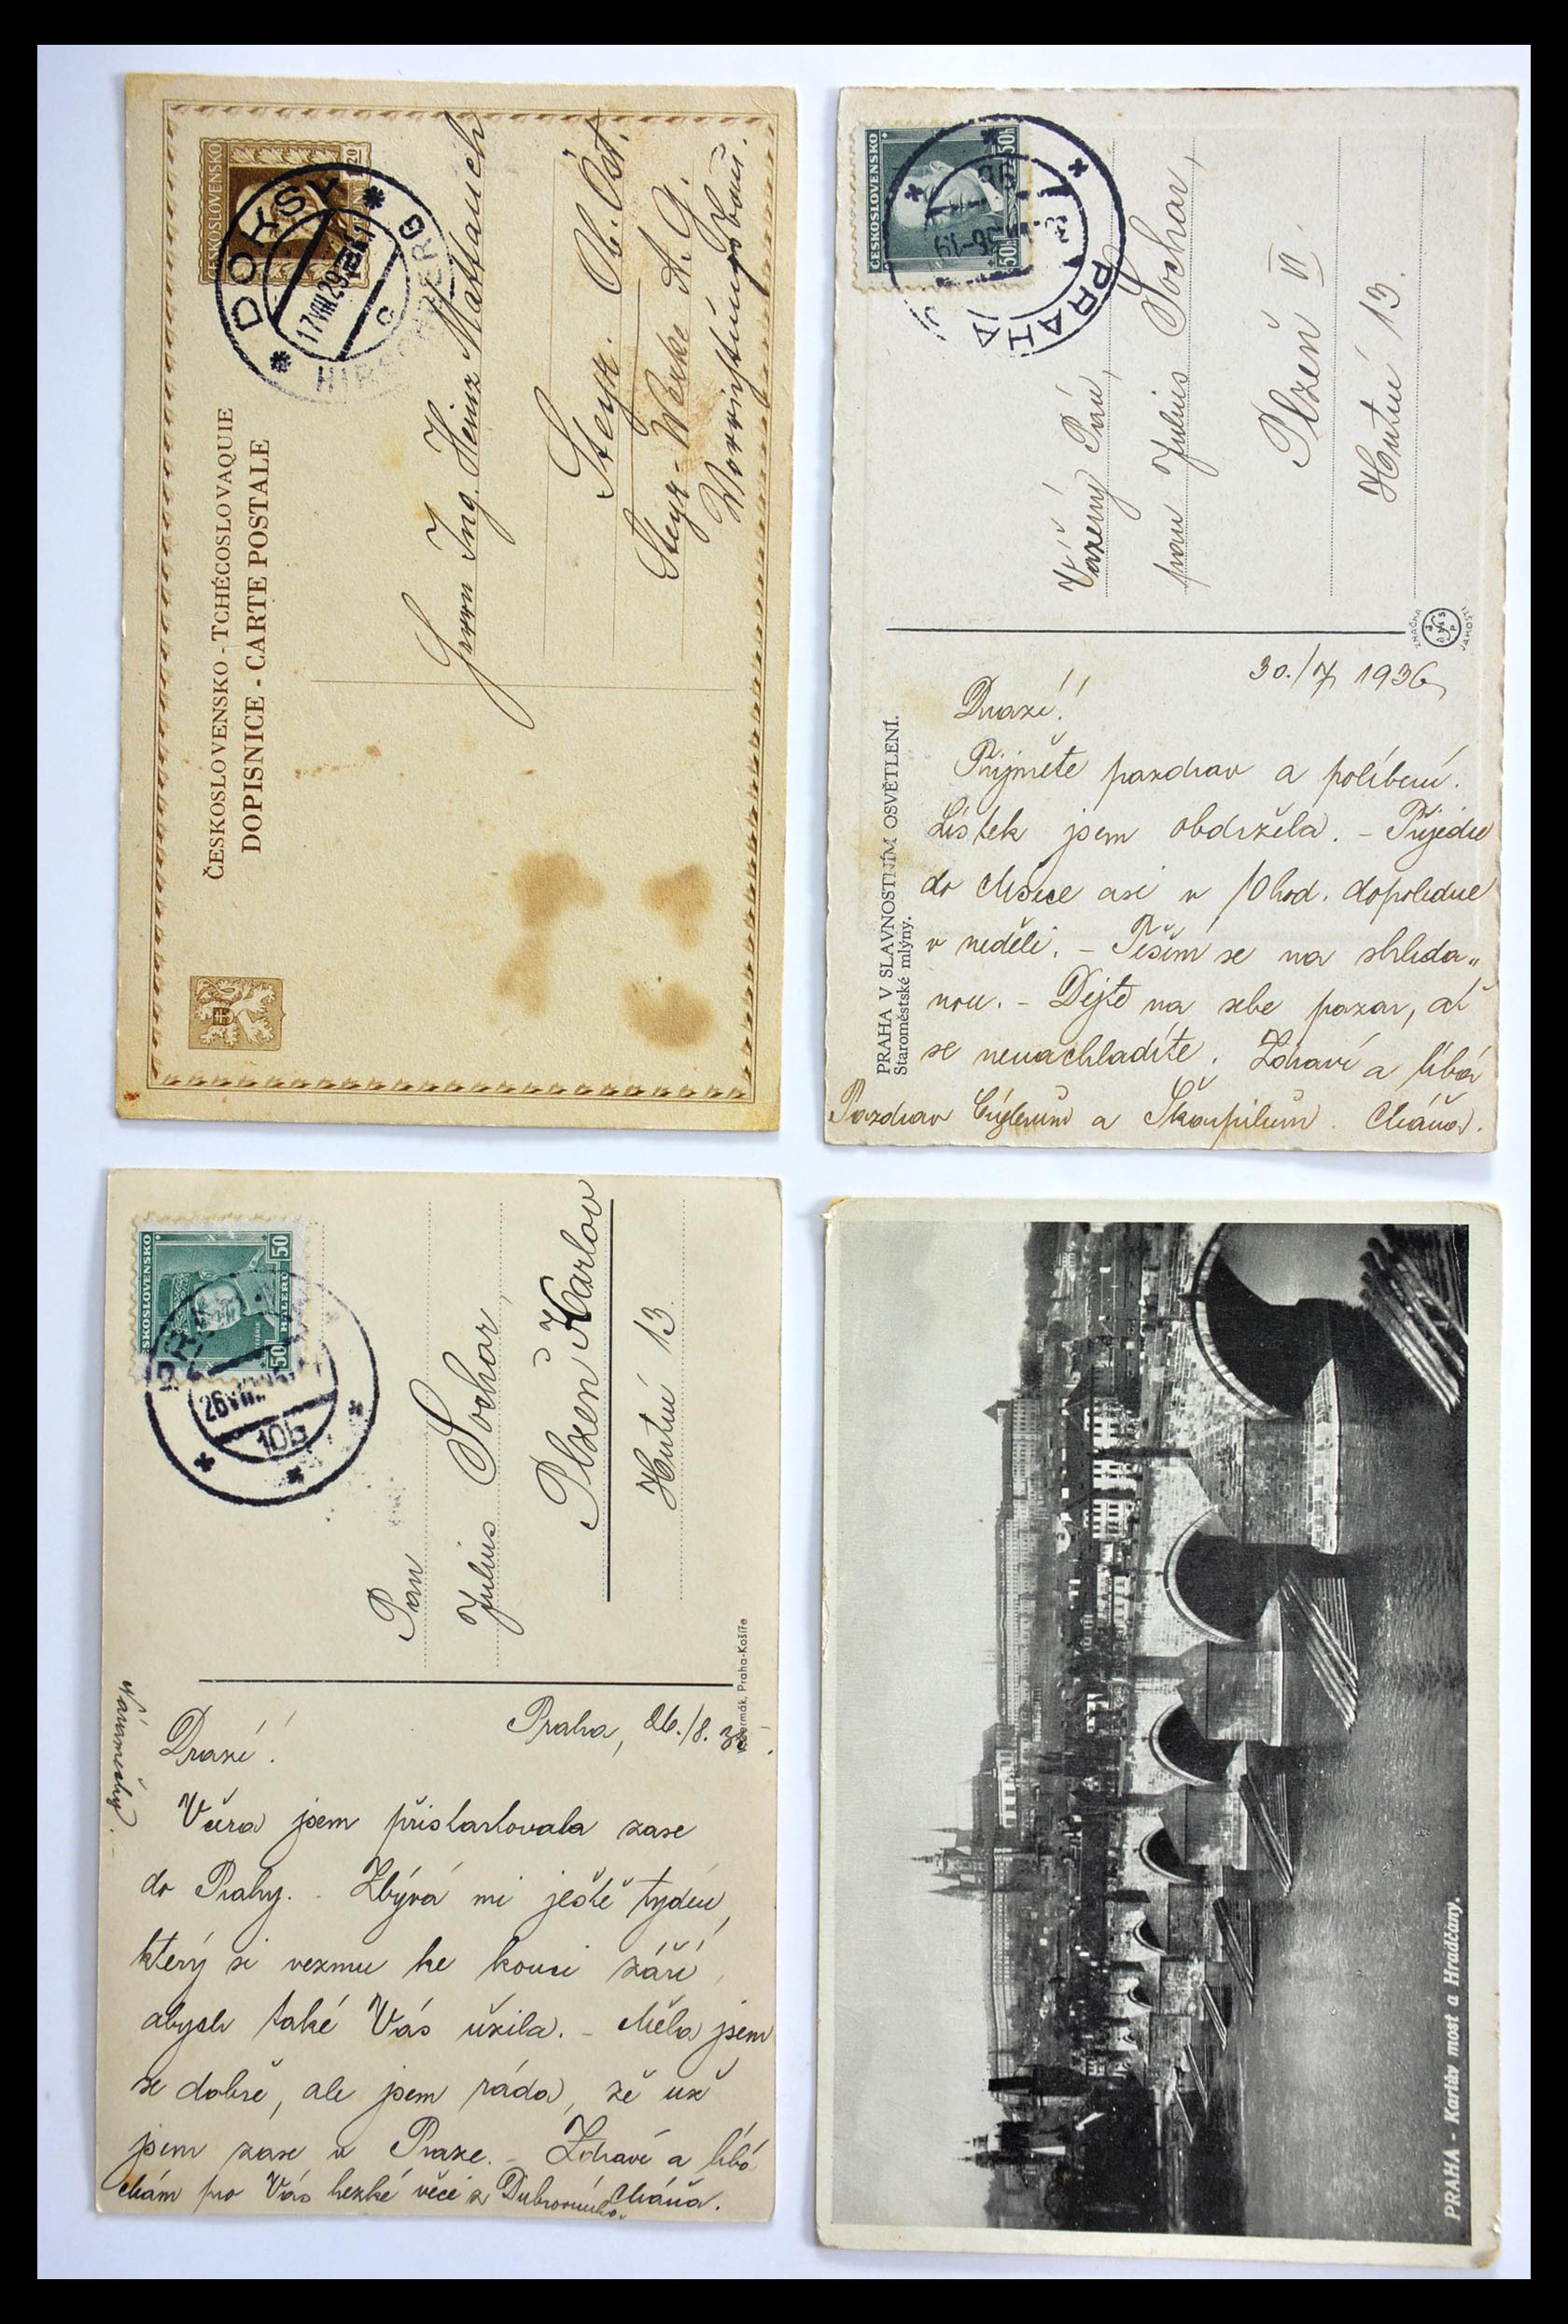 ČESKOSLOVENSKO - TCHÉCOSLOVAQUIE
DOPISNICE - CARTE POSTALE
ČESKOSLOVENSKO
20
DOKSY
HIRSCHBERG
17 VIII 29
c
Herrn Ing. Heinz Mattauch
Steyr. Ob. Öst.
Steyr-Werke A. G.
ČESKOSLOVENSKO
50h 50h
PRAHA
Vážený Pán,
pan Julius Sochor,
Plzeň VI.
Hutní 13.
ZNAČKA
JAKOSTI
PRAHA V SLAVNOSTNÍM OSVĚTLENÍ.
Staroměstské mlýny.
30./7 1936,
Drazí!
Přijměte pozdrav a políbení.
Lístek jsem obdržela. - Přijedu
do Mšece asi v 10 hod. dopoledne
v neděli. - Těším se na shleda„
nou. - Dejte na sebe pozor, ať
se nenachladíte. Zdraví a líbá
Pozdrav a Škoupilům. Máňa.
ČESKOSLOVENSKO
50 HALÉŘŮ 50
26 VIII
10b
Pan
Julius Sochor,
Plzeň Karlov
Hutní 13.
Praha-Košíře
Praha, 26./8. 35.
Drazí!
Včera jsem přistartovala zase
do Prahy. - Zbývá mi ještě týden,
který si vezmu ke konci září,
abych také Vás užila. - Měla jsem
se dobře, ale jsem ráda, že už
jsem zase v Praze. - Zdraví a líbá
Mám pro Vás hezké věci z Dubrovníka. Máňa.
PRAHA - Karlův most a Hradčany.